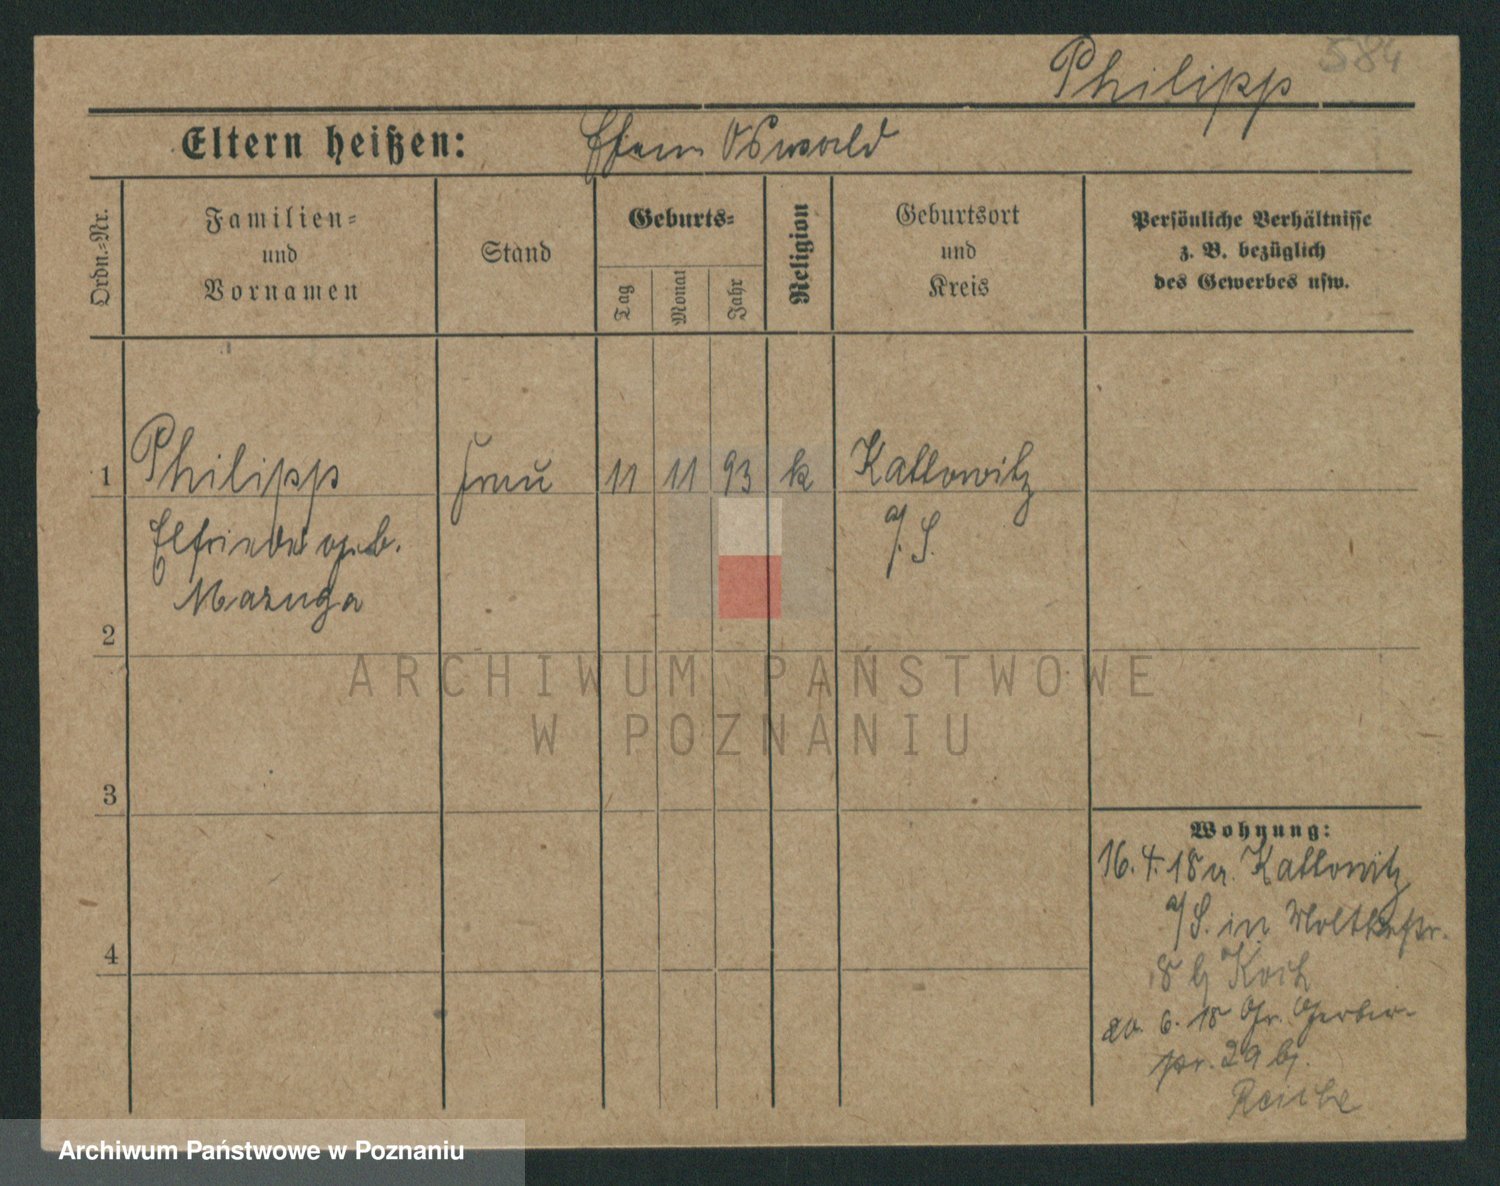 584
Philipp
Eltern heißen: Ehem. Oswald
Ordn.=Nr.
Familien=
und
Vornamen
Stand
Geburts=
Tag
Monat
Jahr
Religion
Geburtsort
und
Kreis
Persönliche Verhältnisse
z. B. bezüglich
des Gewerbes usw.
1 Philipp Frau 11 11 93 k Kattowitz
Elfriede geb. a/S.
Mazuga
2
3
4
Wohnung:
16. 4. 18 v. Kattowitz
a/S. in Moltkestr.
8 b/ Koch
20. 6. 18 Gr. Gerber-
str. 29 b/.
Reiche
ARCHIWUM PAŃSTWOWE
W POZNANIU
Archiwum Państwowe w Poznaniu